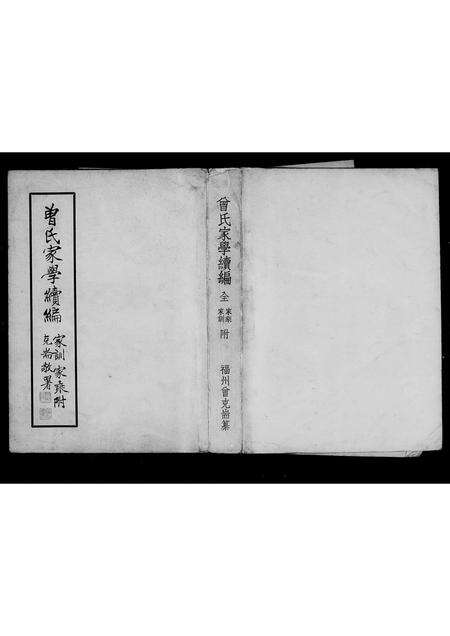 曾氏家學續編
家訓家乘附
克耑敬署
曾氏家學續編 全 家乘 家訓 附 福州曾克耑纂